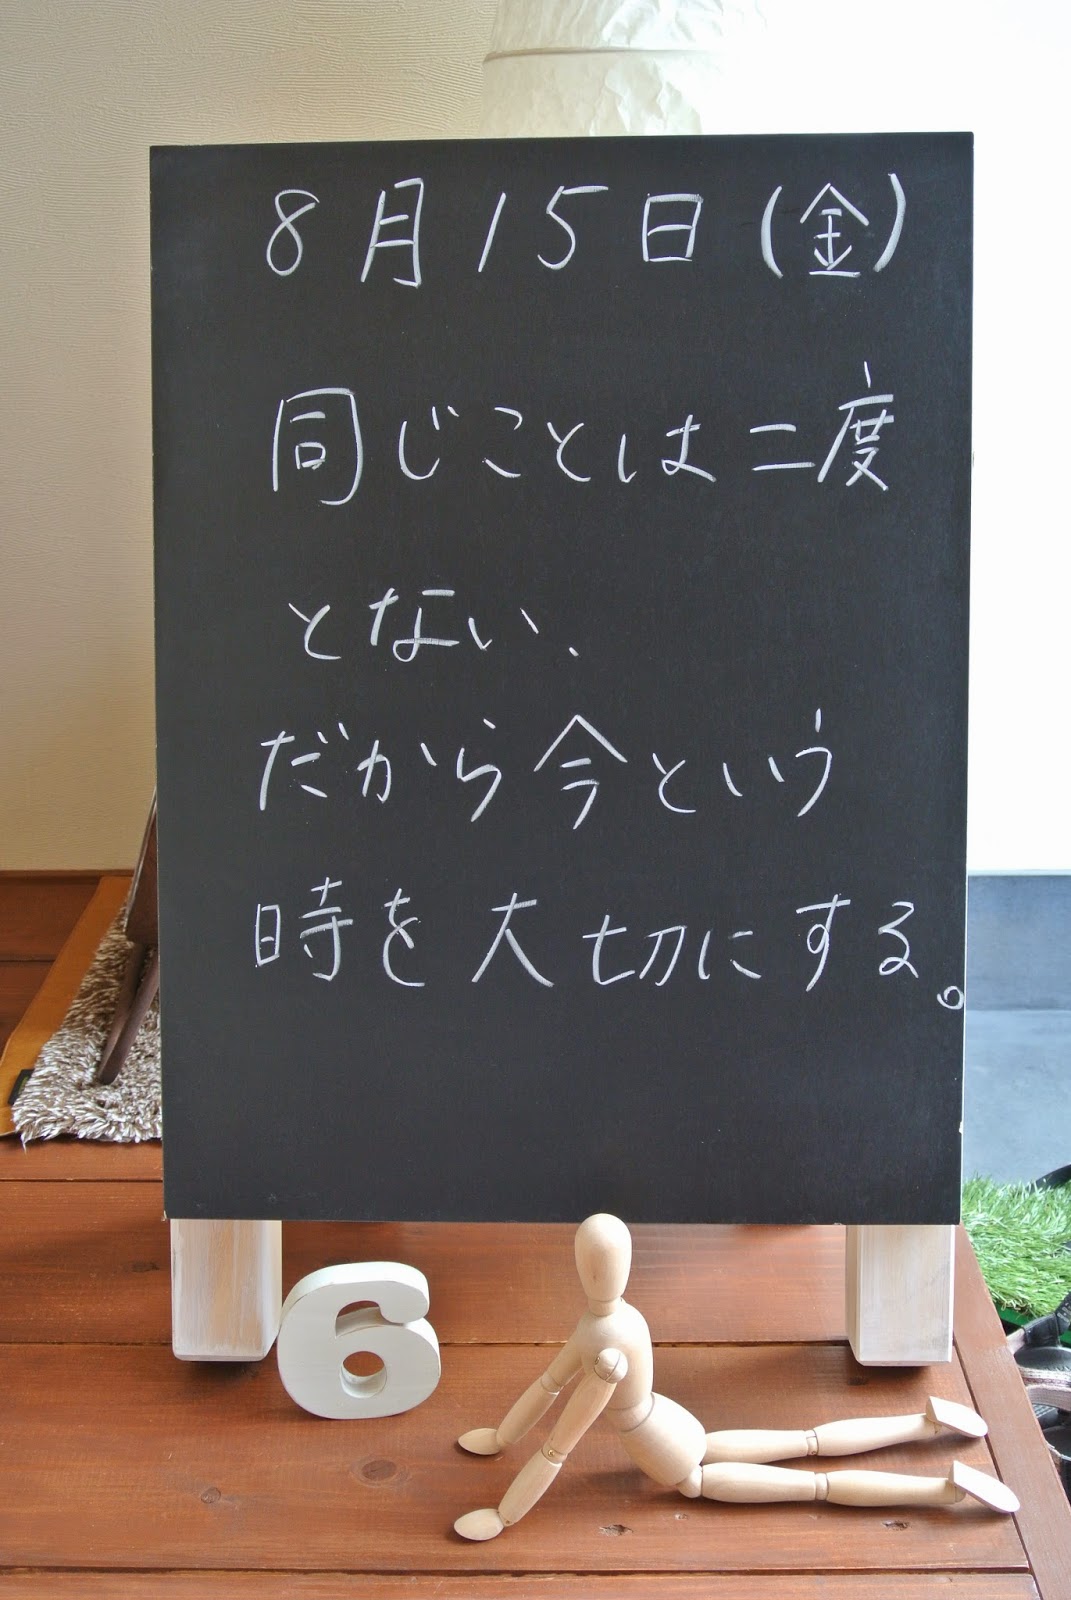 8月15日(金)
同じことは二度
とない、
だから今という
時を大切にする。
6